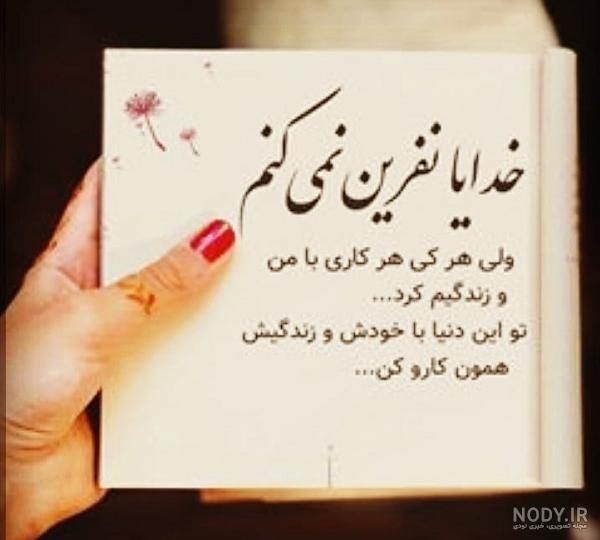 خدایا نفرین نمی کنم
ولی هر کی هر کاری با من
و زندگیم کرد...
تو این دنیا با خودش و زندگیش
همون کارو کن...
NODY.IR
مجله تصویری، خبری نودی